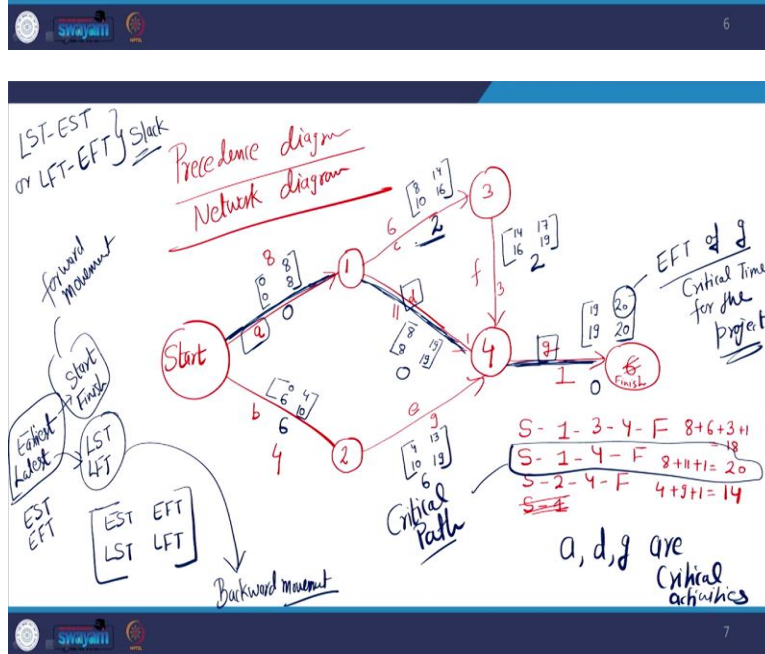 swayam
6
LST-EST
or LFT-EFT
Slack
Precedence diagram
Network diagram
forward
movement
Start
Finish
Earliest
Latest
LST
LFT
EST
EFT
EST EFT
LST LFT
Backward movement
Start
8
0 8
0 8
0
a
1
6
c
8 14
10 16
2
3
f
3
14 17
16 19
2
11
d
8 19
8 19
0
4
b
0 4
6 10
6
4
2
e
9
4 13
10 19
6
g
1
0
19 20
19 20
Finish
EFT of g
Critical Time
for the
project
S - 1 - 3 - 4 - F 8+6+3+1
= 18
S - 1 - 4 - F 8+11+1 = 20
S - 2 - 4 - F 4+9+1 = 14
Critical
Path
a, d, g are
Critical
activities
swayam
7